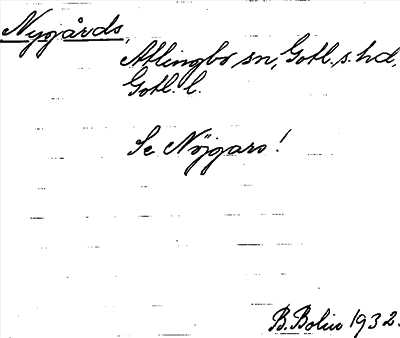 Nygårds
Atlingbo sn, Gotl. s. hd,
Gotl. l.
Se Nöjgars!
B. Bolin 1932.